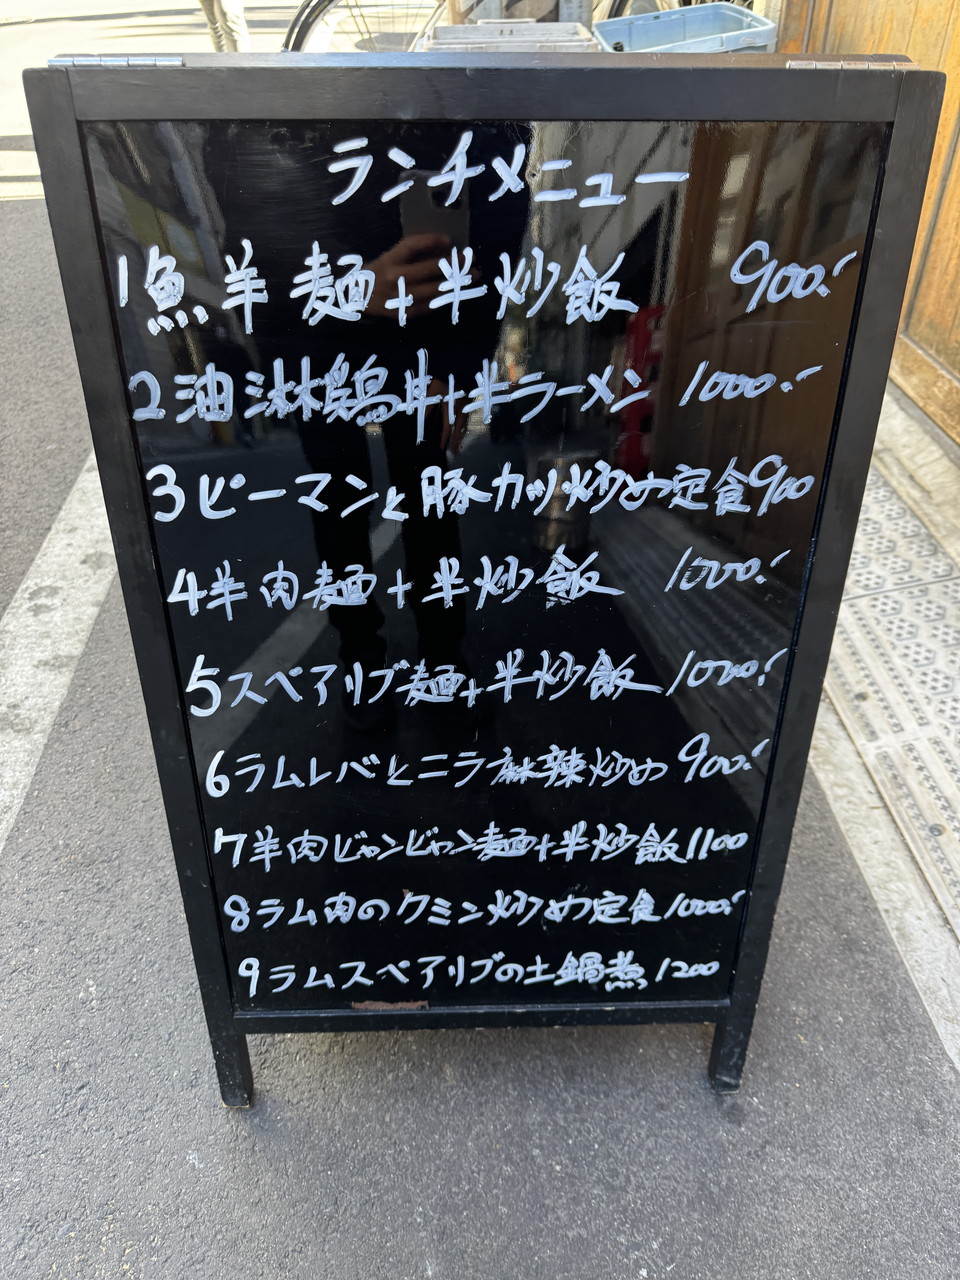 ランチメニュー
1魚羊麺+半炒飯 900.-
2油淋鶏丼+半ラーメン 1000.-
3ピーマンと豚カツ炒め定食900
4羊肉麺+半炒飯 1000.-
5スペアリブ麺+半炒飯 1000.-
6ラムレバとニラ麻辣炒め 900.-
7羊肉ビャンビャン麺+半炒飯1100
8ラム肉のクミン炒め定食1000.-
9ラムスペアリブの土鍋煮 1200